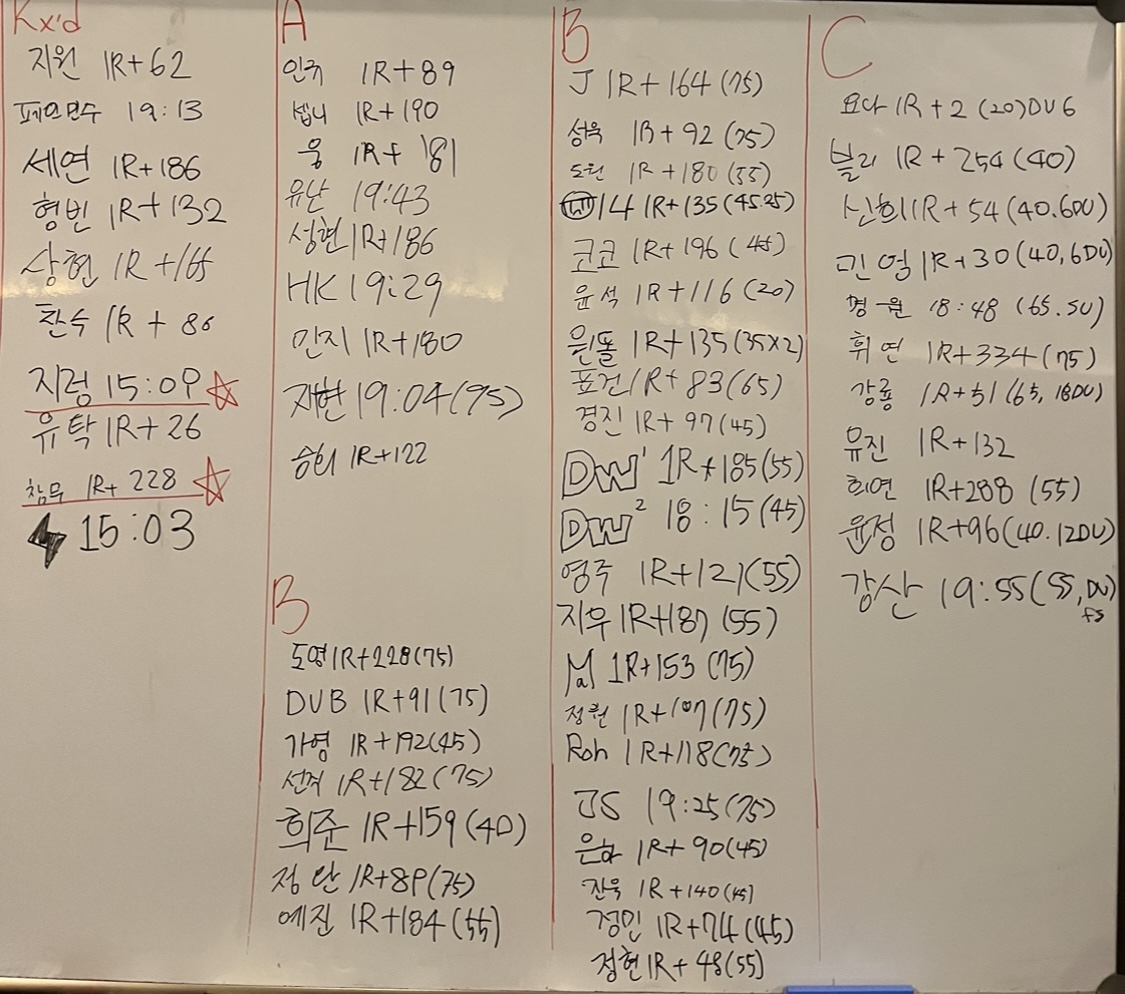 Rx'd
지원 1R+62
페인민수 19:13
세연 1R+186
형빈 1R+132
상현 1R+165
찬수 1R+86
지렁 15:09
유탁 1R+26
참무 1R+228
15:03
A
인규 1R+89
셉니 1R+190
웅 1R+181
유난 19:43
성현 1R+186
HK 19:29
민지 1R+180
재현 19:04(95)
승희 1R+122
B
도영 1R+228(75)
DUB 1R+91(75)
가영 1R+192(45)
선계 1R+182(75)
희준 1R+159(40)
정란 1R+89(75)
예진 1R+184(55)
B
J 1R+164(75)
성욱 1R+92(75)
도원 1R+180(55)
14 1R+135(45.25)
코코 1R+196(45)
윤석 1R+116(20)
원돌 1R+135(35x2)
표건 1R+83(65)
경진 1R+97(45)
DW1 1R+185(55)
DW2 18:15(45)
영주 1R+121(55)
지우 1R+187(55)
1R+153(75)
정원 1R+107(75)
Roh 1R+118(75)
JS 19:25(75)
은하 1R+90(45)
찬욱 1R+140(45)
정민 1R+74(45)
정현 1R+48(55)
C
요다 1R+2(20)DU6
블리 1R+254(40)
신희 1R+54(40.6DU)
민영 1R+30(40,6DU)
경원 18:48(65.SU)
휘연 1R+334(75)
강룡 1R+51(65,18DU)
유진 1R+132
희연 1R+288(55)
윤정 1R+96(40.12DU)
강산 19:55(55,DU)
fs